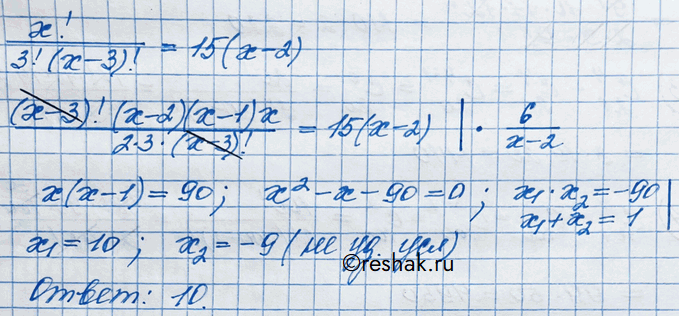 x! / 3!(x-3)! = 15(x-2)
(x-3)!(x-2)(x-1)x / 2·3·(x-3)! = 15(x-2) | · 6 / x-2
x(x-1)=90; x²-x-90=0; x₁·x₂=-90
x₁+x₂=1
x₁=10; x₂=-9 (не уд. усл)
©reshak.ru
Ответ: 10.